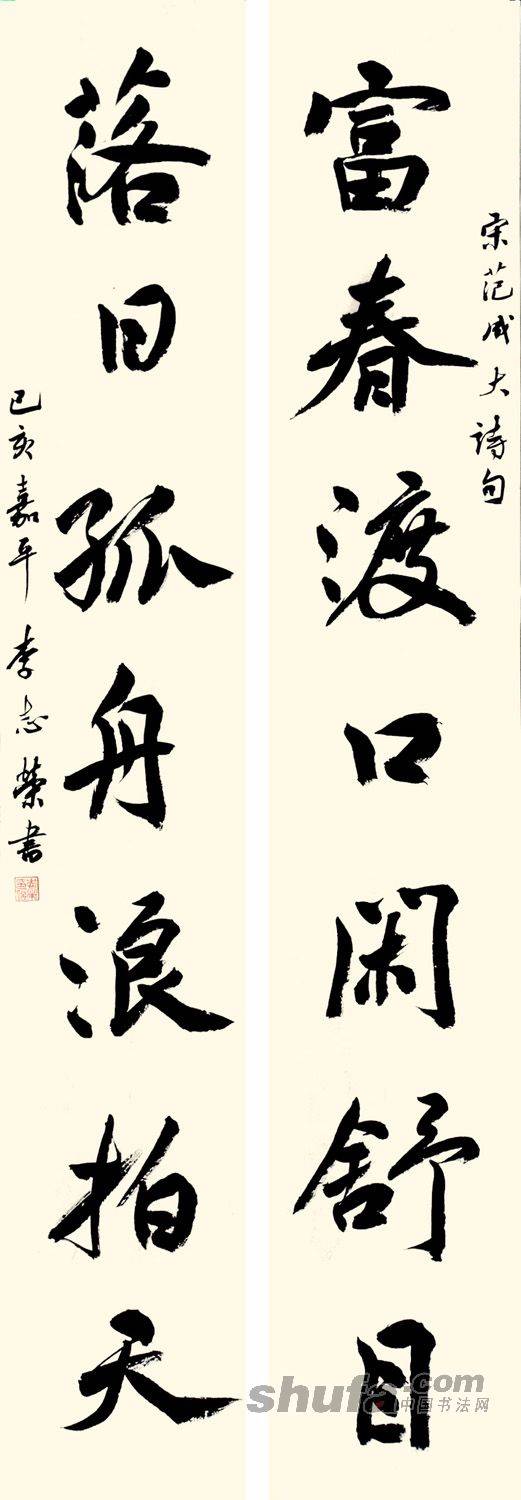 宋范成大詩句
富春渡口闲舒目
落日孤舟浪拍天
己亥嘉平李志榮書
shufa.com
中国书法网